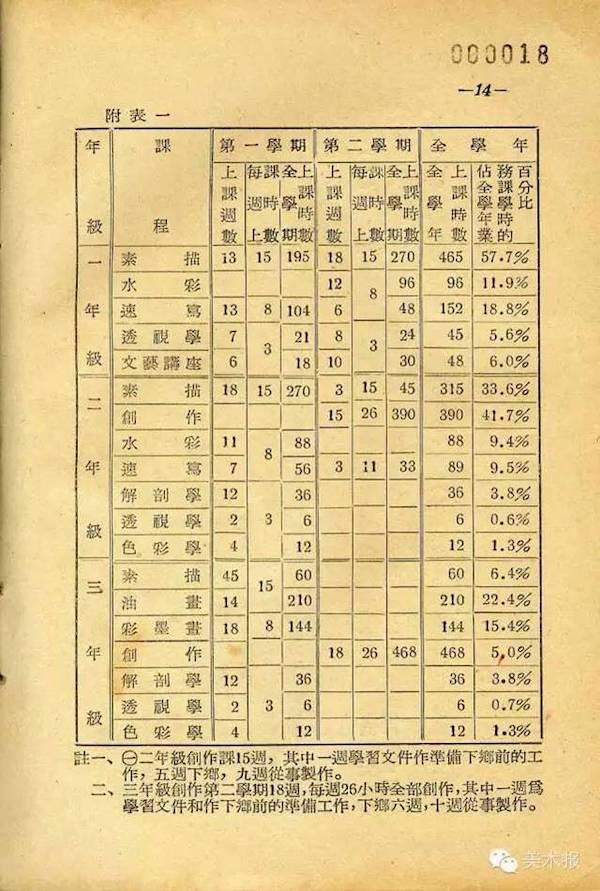 000018
—14—
附表一
年級 課程 第一學期 第二學期 全學年
上課週數 每週上課時數 全學期上課時數 上課週數 每週上課時數 全學期上課時數 全學年上課時數 佔全學年業務課學時的百分比
一年級
素描 13 15 195 18 15 270 465 57.7%
水彩 12 8 96 96 11.9%
速寫 13 8 104 6 48 152 18.8%
透視學 7 3 21 8 3 24 45 5.6%
文藝講座 6 18 10 30 48 6.0%
二年級
素描 18 15 270 3 15 45 315 33.6%
創作 15 26 390 390 41.7%
水彩 11 8 88 88 9.4%
速寫 7 56 3 11 33 89 9.5%
解剖學 12 3 36 36 3.8%
透視學 2 6 6 0.6%
色彩學 4 12 12 1.3%
三年級
素描 45 15 60 60 6.4%
油畫 14 210 210 22.4%
彩墨畫 18 8 144 144 15.4%
創作 18 26 468 468 5.0%
解剖學 12 3 36 36 3.8%
透視學 2 6 6 0.7%
色彩學 4 12 12 1.3%
註一、㊀二年級創作課15週，其中一週學習文件作準備下鄉前的工
作，五週下鄉，九週從事製作。
二、三年級創作第二學期18週，每週26小時全部創作，其中一週爲
學習文件和作下鄉前的準備工作，下鄉六週，十週從事製作。
美术报